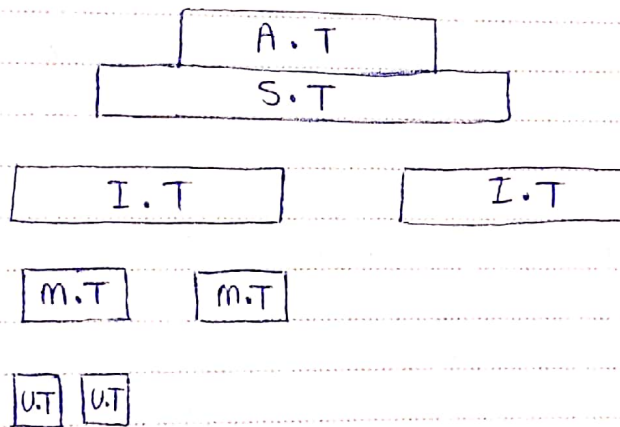 A.T
S.T
I.T I.T
M.T M.T
U.T U.T